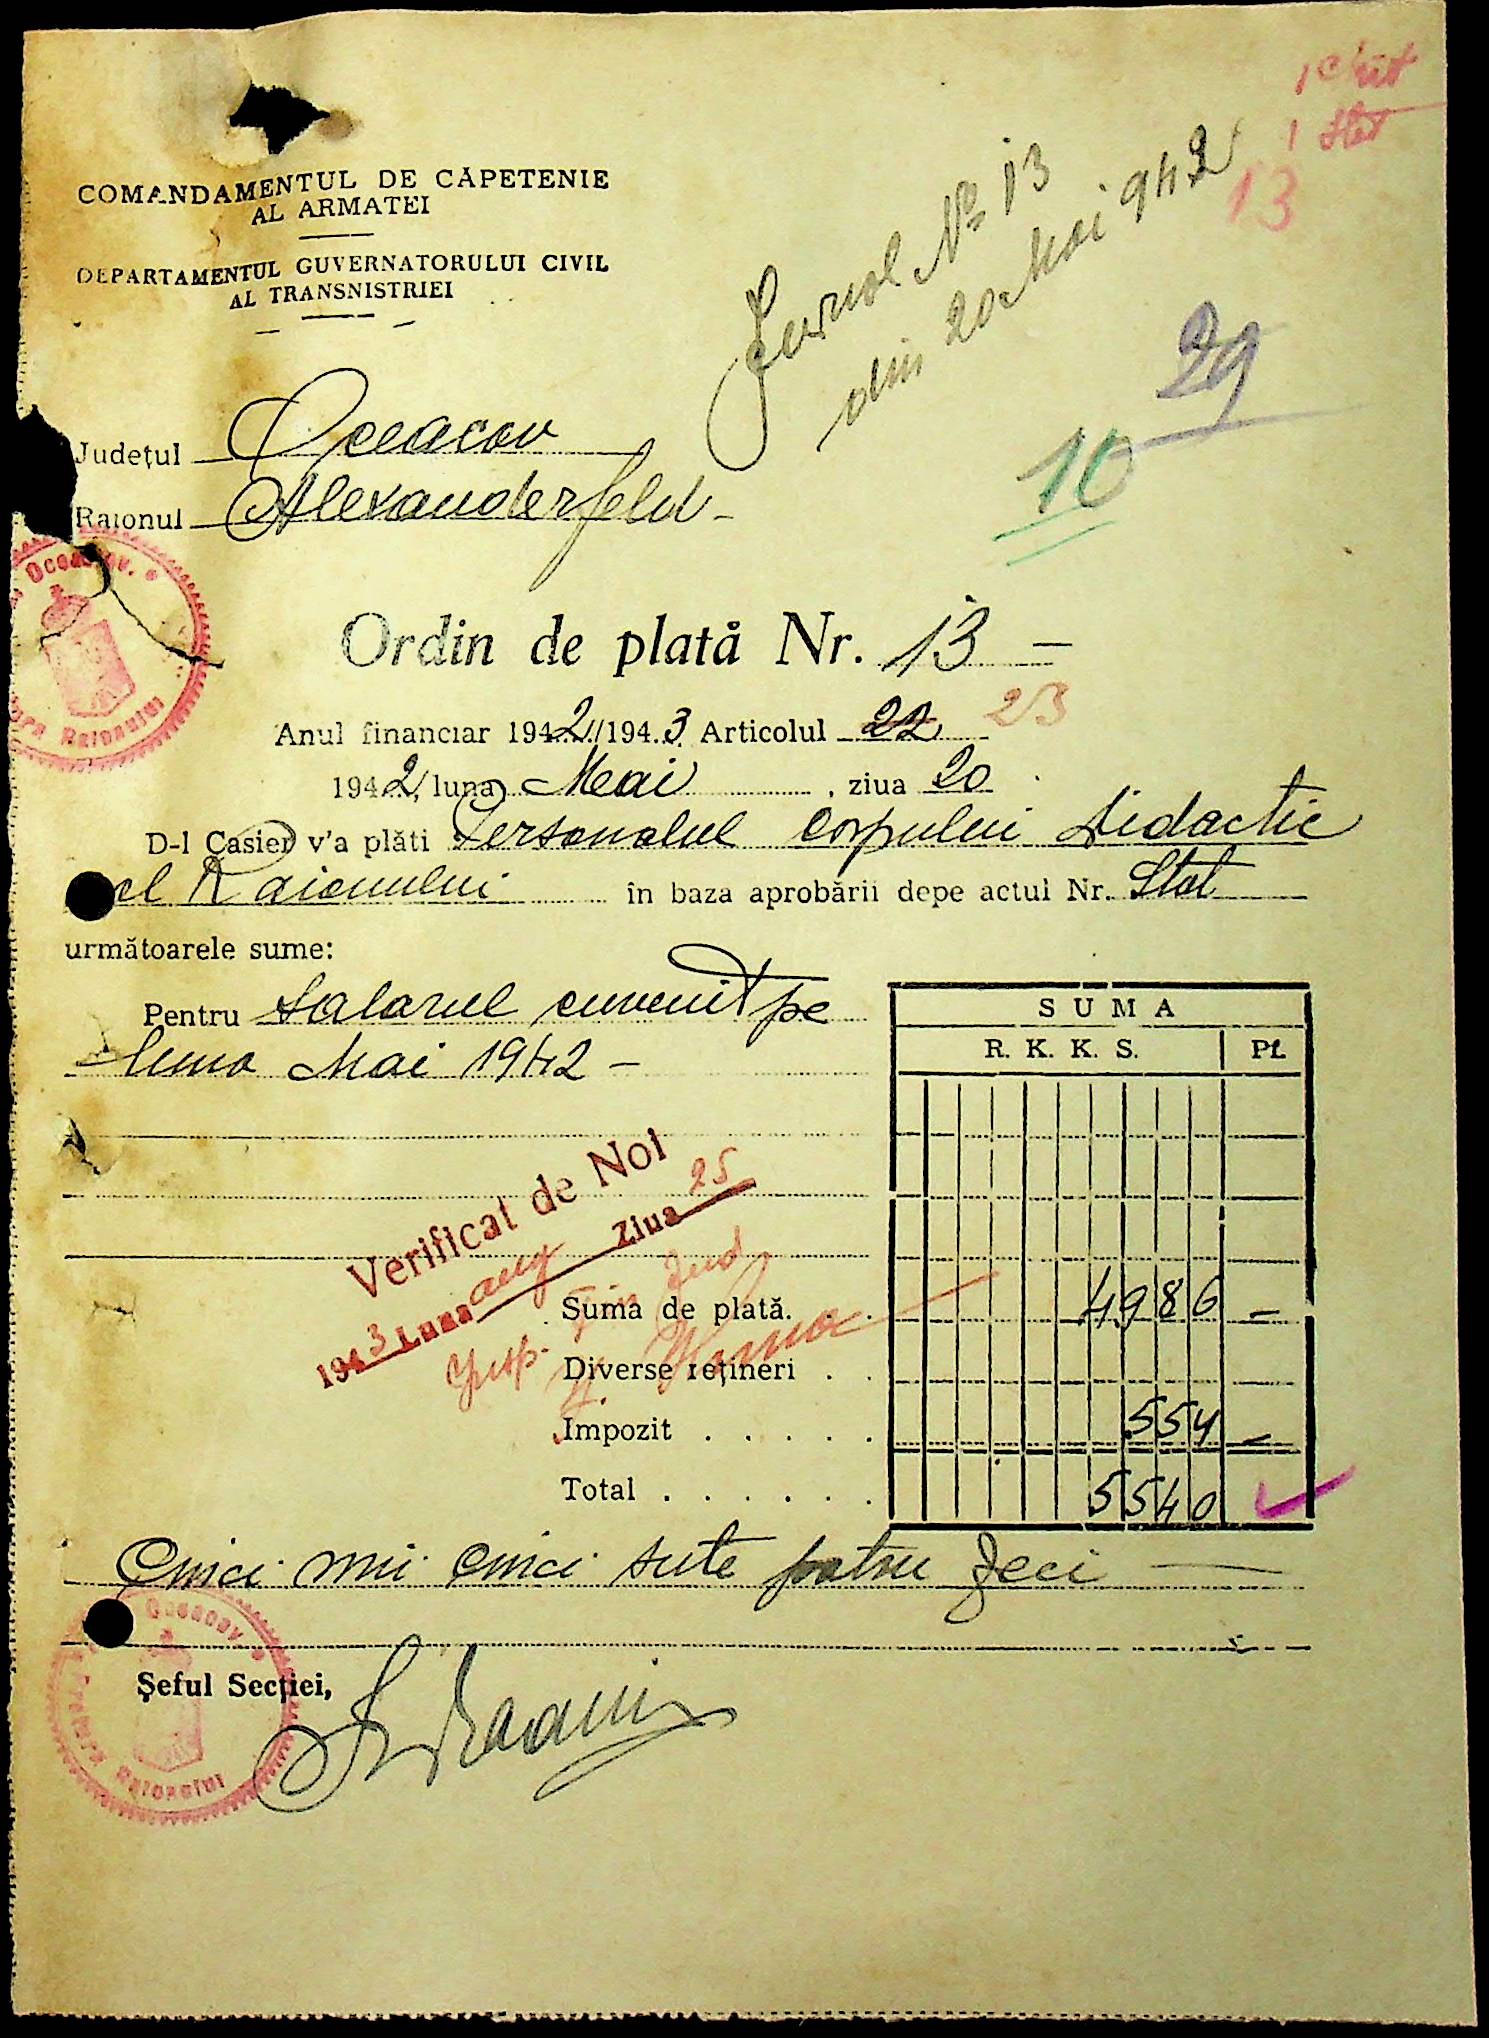 1 Chit
1 Stat
13
COMANDAMENTUL DE CĂPETENIE
AL ARMATEI
DEPARTAMENTUL GUVERNATORULUI CIVIL
AL TRANSNISTRIEI
Jurnal No 13
din 20 Mai 942
29
10
Județul Oceacov
Raionul Alexanderfeld -
Oceacov.
Raionului
Ordin de plată Nr. 13 —
Anul financiar 1942/1943 Articolul 22 23
1942, luna Mai, ziua 20
D-l Casier v'a plăti Personalul corpului didactic
al Raionului în baza aprobării depe actul Nr. Stat
următoarele sume:
Pentru salarul cuvenit pe
luna Mai 1942 —
SUMA
R. K. K. S. Pf.
Verificat de Noi
1943 Luna aug Ziua 25
Insp. Fin Jud
Suma de plată. 4986 —
Diverse rețineri . .
Impozit . . . . . 554 —
Total . . . . . . 5540
Cinci mii cinci sute patru zeci —
Oceacov.
Pretura
Raionului
Șeful Secției,